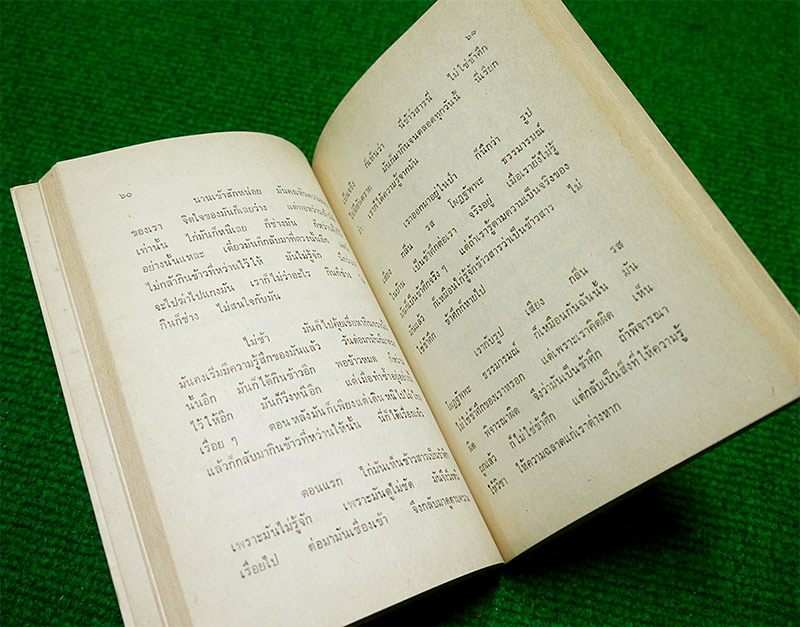 ๖๐
นานเข้าสักหน่อย มันคงเห็นความ
ของเรา จิตใจของมันก็เฉยว่าง
เท่านั้น ไก่มันก็หนีเฉย ก็ช่างมัน
อย่างนั้นแหละ เดี๋ยวมันก็กลับมาที่ตรงนั้นอีก
ไม่กล้ากินข้าวที่หว่านไว้ให้ มันไม่รู้จัก
จะไปฆ่าไปแกงมัน เราก็ไม่ว่าอะไร กินก็ช่าง
กินก็ช่าง ไม่สนใจกับมัน
ไม่ช้า มันก็ไปคุ้ยเขี่ยหากิน
มันคงเริ่มมีความรู้สึกของมันแล้ว วันต่อมามันก็มา
นั้นอีก มันก็ได้กินข้าวอีก พอข้าวหมด ก็
ไว้ให้อีก มันก็วิ่งหนีอีก แต่เมื่อทำซ้ำอยู่
เรื่อย ๆ ตอนหลังมันก็เพียงแต่เดินหนีไปไม่
แล้วก็กลับมากินข้าวที่หว่านให้นั้น นี่ก็ได้เรื่องแล้ว
ตอนแรก ไก่มันเห็นข้าวสารเป็นข้าศึก
เพราะมันไม่รู้จัก เพราะมันดูไม่ชัด
เรื่อยไป ต่อมามันเชื่องเข้า จึงกลับมาดูตามความ
๖๑
เป็นจริง ก็เห็นว่า นี่ข้าวสารนี่ ไม่ใช่ข้าศึก
ไม่มีอันตราย มันก็มากินจนตลอดทุกวันนี้ นี่เรียก
ว่า เราก็ได้ความรู้จากมัน
เราออกมาอยู่ในป่า ก็นึกว่า รูป
เสียง กลิ่น รส โผฏฐัพพะ ธรรมารมณ์
ในบ้าน เป็นข้าศึกต่อเรา จริงอยู่ เมื่อเรายังไม่รู้
มันก็เป็นข้าศึกจริง ๆ แต่ถ้าเรารู้ตามความเป็นจริงของ
มันแล้ว ก็เหมือนไก่รู้จักข้าวสารว่าเป็นข้าวสาร ไม่
ใช่ข้าศึก ข้าศึกก็หายไป
เรากับรูป เสียง กลิ่น รส
โผฏฐัพพะ ธรรมารมณ์ ก็เหมือนกันฉันนั้น มัน
ไม่ใช่ข้าศึกของเราหรอก แต่เพราะเราคิดผิด เห็น
ผิด พิจารณาผิด จึงว่ามันเป็นข้าศึก ถ้าพิจารณา
ถูกแล้ว ก็ไม่ใช่ข้าศึก แต่กลับเป็นสิ่งที่ให้ความรู้
ให้วิชา ให้ความฉลาดแก่เราต่างหาก